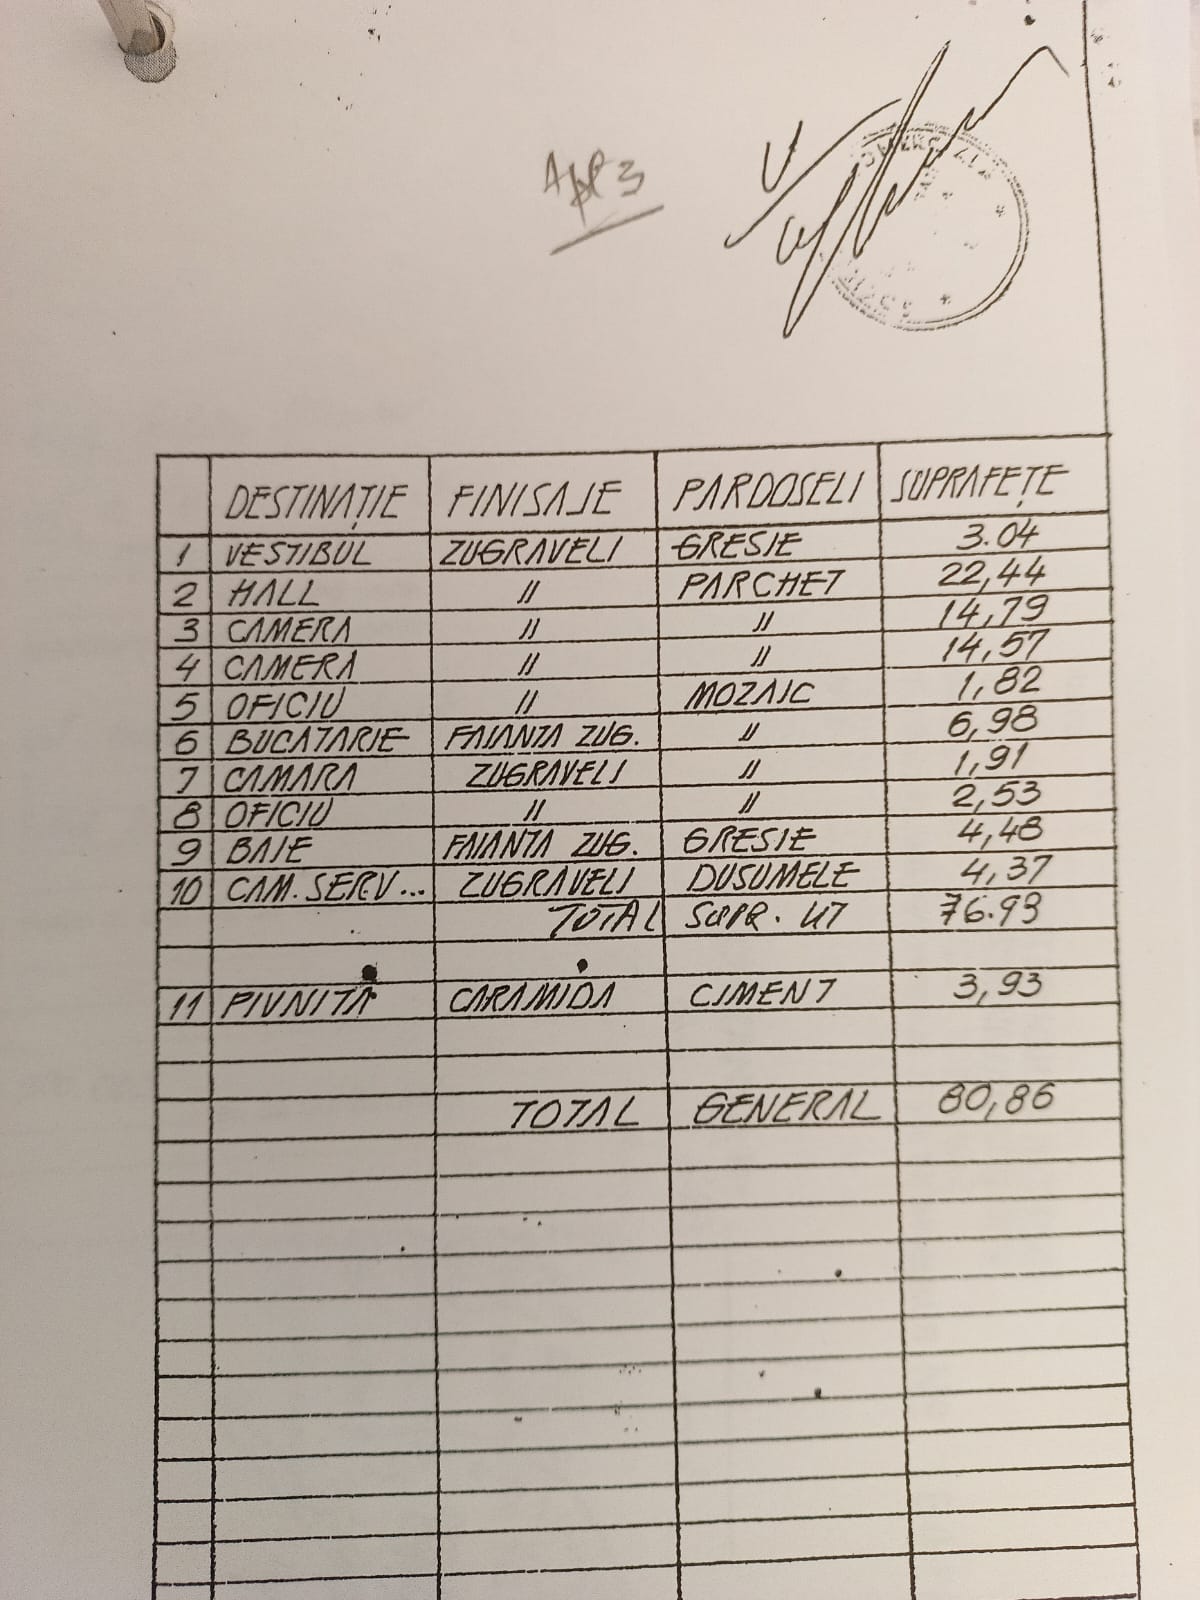 App 3
DESTINAȚIE FINISAJE PARDOSELI SUPRAFEȚE
1 VESTIBUL ZUGRAVELI GRESIE 3.04
2 HALL // PARCHET 22,44
3 CAMERA // // 14,79
4 CAMERA // // 14,57
5 OFICIU // MOZAIC 1,82
6 BUCATARIE FAIANTA ZUG. // 6,98
7 CAMARA ZUGRAVELI // 1,91
8 OFICIU // // 2,53
9 BAIE FAIANTA ZUG. GRESIE 4,48
10 CAM. SERV... ZUGRAVELI DUSUMELE 4,37
TOTAL SUPR. UT 76.93
11 PIVNITA CARAMIDA CIMENT 3,93
TOTAL GENERAL 80,86